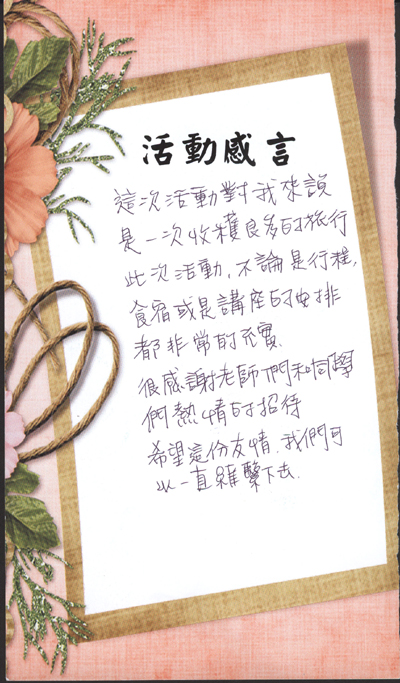 活動感言
這次活動對我來說
是一次收穫良多的旅行
此次活動,不論是行程,
食宿或是講座的安排
都非常的充實.
很感謝老師們和同學
們熱情的招待
希望這份友情,我們可
以一直維繫下去.